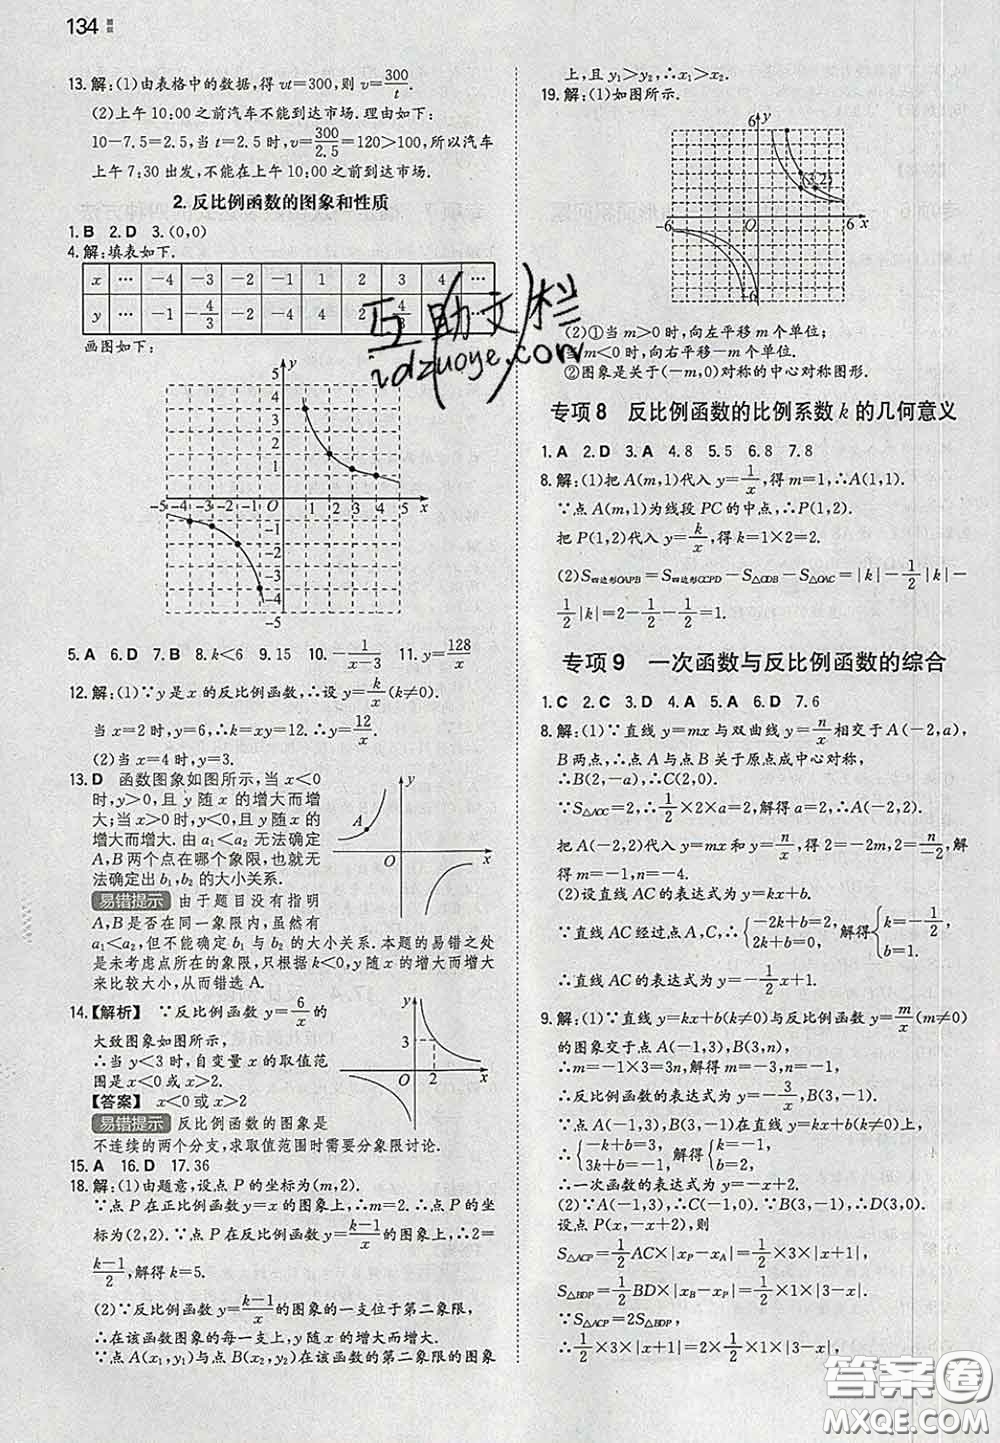 134
13.解:(1)由表格中的数据,得 vt=300,则 v=300/t.
(2)上午 10:00 之前汽车不能到达市场.理由如下:
10-7.5=2.5,当 t=2.5 时,v=300/2.5=120>100,所以汽车
上午 7:30 出发,不能在上午 10:00 之前到达市场.
2.反比例函数的图象和性质
1.B 2.D 3.(0,0)
4.解:填表如下.
x … -4 -3 -2 -1 1 2 3 4 …
y … -1 -4/3 -2 -4 4 2 4/3 …
画图如下:
5 y
4
3
2
1
-5 -4 -3 -2 -1 O 1 2 3 4 5 x
-1
-2
-3
-4
-5
5.A 6.D 7.B 8.k<6 9.15 10.-1/(x-3) 11.y=128/x
12.解:(1)∵y是x的反比例函数,∴设 y=k/x(k≠0).
当 x=2 时,y=6,∴k=xy=12.∴y=12/x.
(2)当 x=4 时,y=3.
13.D 函数图象如图所示,当 x<0
时,y>0,且 y 随 x 的增大而增
大;当 x>0 时,y<0,且 y 随 x 的
增大而增大.由 a₁<a₂ 无法确定
A,B 两个点在哪个象限,也就无
法确定出 b₁,b₂ 的大小关系.
y A O x
易错提示 由于题目没有指明
A,B 是否在同一象限内,虽然有
a₁<a₂,但不能确定 b₁ 与 b₂ 的大小关系.本题的易错之处
是未考虑点所在的象限,只根据 k<0,y 随 x 的增大而增大
来比较大小,从而错选 A.
14.【解析】 ∵反比例函数 y=6/x 的
大致图象如图所示,
∴当 y<3 时,自变量 x 的取值范
围是 x<0 或 x>2.
【答案】 x<0 或 x>2
y 3 O 2 x
易错提示 反比例函数的图象是
不连续的两个分支,求取值范围时需要分象限讨论.
15.A 16.D 17.36
18.解:(1)由题意,设点 P 的坐标为(m,2).
∵点 P 在正比例函数 y=x 的图象上,∴m=2.∴点 P 的坐
标为(2,2).∵点 P 在反比例函数 y=(k-1)/x 的图象上,∴2=
(k-1)/2,解得 k=5.
(2)∵反比例函数 y=(k-1)/x 的图象的一支位于第二象限,
∴在该函数图象的每一支上,y 随 x 的增大而增大.
∵点 A(x₁,y₁)与点 B(x₂,y₂)在该函数的第二象限的图象
上,且 y₁>y₂,∴x₁>x₂.
19.解:(1)如图所示.
6 y
(3,2)
-6 O 6 x
-6
(2)①当 m>0 时,向左平移 m 个单位;
当 m<0 时,向右平移 -m 个单位.
②图象是关于(-m,0)对称的中心对称图形.
专项8 反比例函数的比例系数 k 的几何意义
1.A 2.D 3.A 4.8 5.5 6.8 7.8
8.解:(1)把 A(m,1)代入 y=1/x,得 m=1,∴A(1,1).
∵点 A(m,1)为线段 PC 的中点,∴P(1,2).
把 P(1,2)代入 y=k/x,得 k=1×2=2.
(2)S四边形OAPB=S四边形OCPD-S△ODB-S△OAC=|k|-1/2|k|-
1/2|k|=2-1/2-1/2=1.
专项9 一次函数与反比例函数的综合
1.C 2.C 3.D 4.A 5.A 6.D 7.6
8.解:(1)∵直线 y=mx 与双曲线 y=n/x 相交于 A(-2,a),
B 两点,∴点 A 与点 B 关于原点成中心对称,
∴B(2,-a),∴C(2,0).
∵S△AOC=2,∴1/2×2×a=2,解得 a=2,∴A(-2,2).
把 A(-2,2)代入 y=mx 和 y=n/x,得 2=-2m,2=n/-2,解得
m=-1,n=-4.
(2)设直线 AC 的表达式为 y=kx+b.
∵直线 AC 经过点 A,C,∴{-2k+b=2, 2k+b=0, 解得{k=-1/2, b=1.
∴直线 AC 的表达式为 y=-1/2x+1.
9.解:(1)∵直线 y=kx+b(k≠0)与反比例函数 y=m/x(m≠0)
的图象交于点 A(-1,3),B(3,n),
∴m=-1×3=3n,∴m=-3,n=-1,
∴反比例函数的表达式为 y=-3/x,B(3,-1).
∵点 A(-1,3),B(3,-1)在直线 y=kx+b 上,
∴{-k+b=3, 3k+b=-1, 解得{k=-1, b=2.
∴一次函数的表达式为 y=-x+2.
(2)∵A(-1,3),∴C(-1,0).∵B(3,-1),∴D(3,0).
设点 P(x,-x+2),则
S△ACP=1/2AC×|xP-xA|=1/2×3×|x+1|,
S△BDP=1/2BD×|xB-xP|=1/2×1×|3-x|.
∵S△ACP=2S△BDP,
∴1/2×3×|x+1|=2×1/2×1×|3-x|,
互助文栏
idzuoye.com
答案圈
MXQE.COM